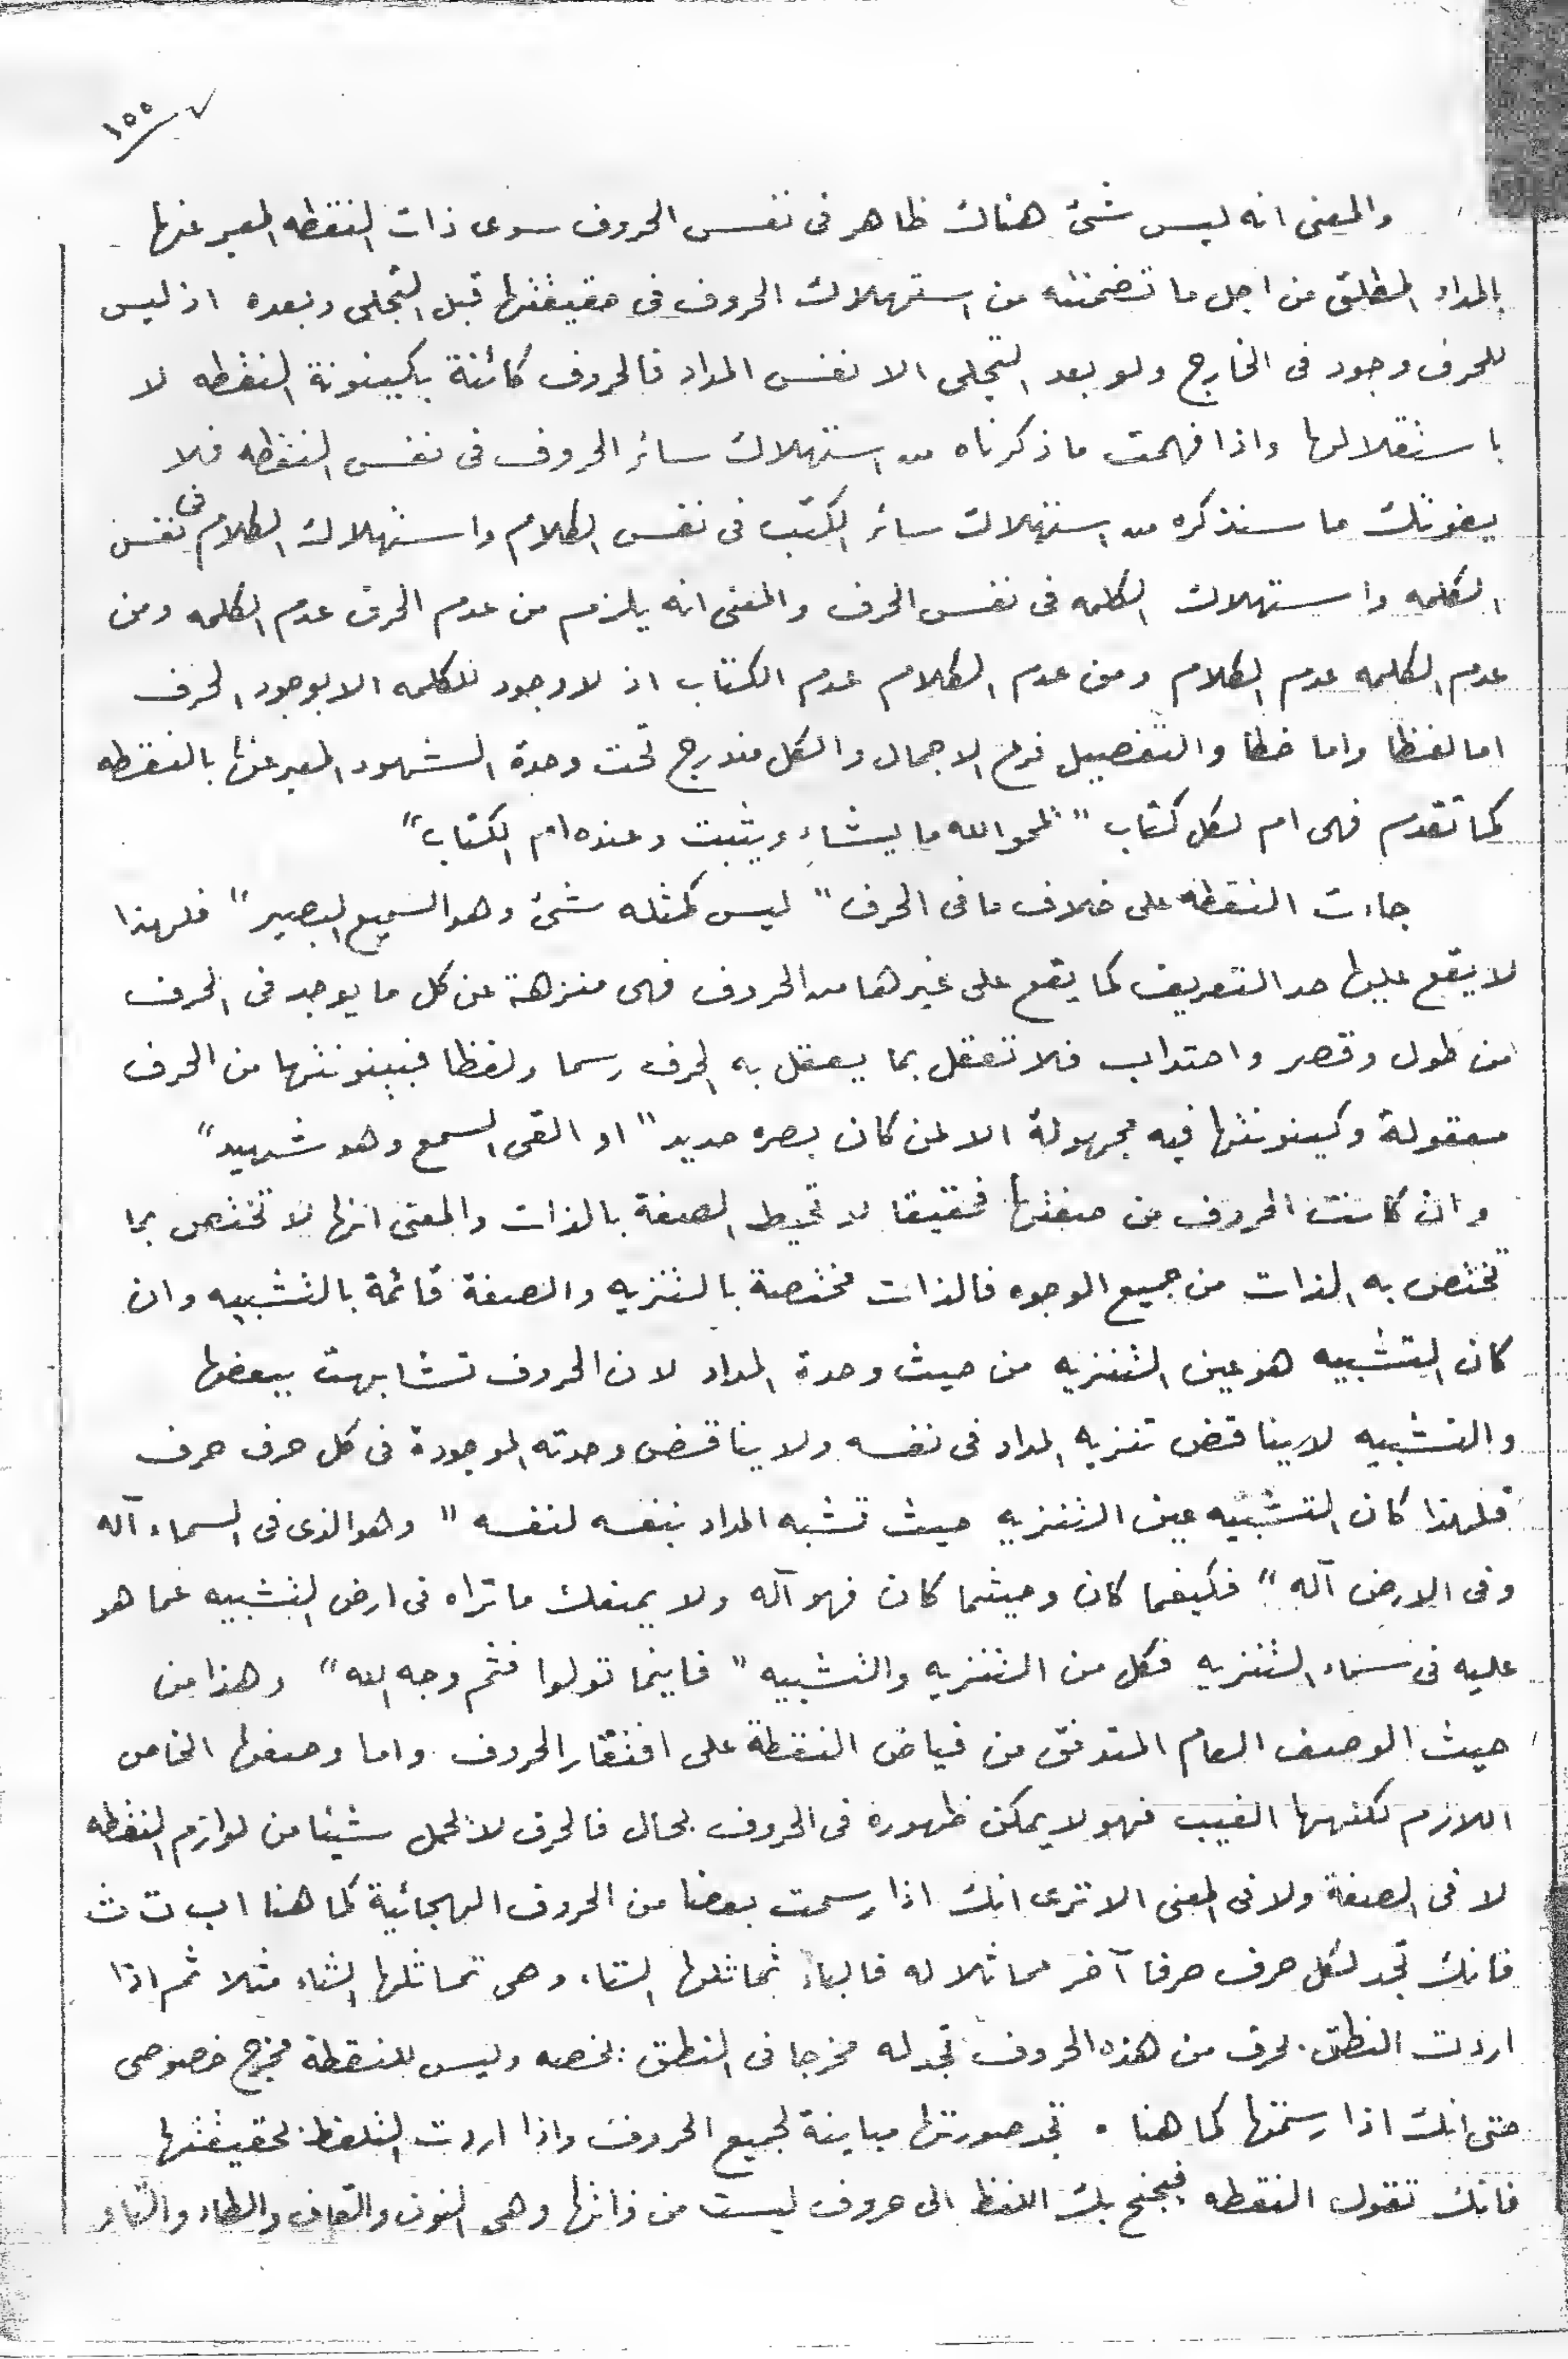 ١٥٥
والمعنى انه ليس شئ هناك ظاهر فى نفس الحروف سوى ذات النقطه المعبر عنها
بالمداد المطلق من اجل ما تضمنته من استهلاك الحروف فى حقيقتها قبل التجلى وبعده اذ ليس
للحرف وجود فى الخارج ولو بعد التجلى الا نفس المداد فالحروف كائنة بكينونة النقطه لا
باستقلالها واذا فهمت ما ذكرناه من استهلاك سائر الحروف فى نفس النقطه فلا
يفوتك ما سنذكره من استهلاك سائر الكتب فى نفس الكلام واستهلاك الكلام فى نفس
الكلمه واستهلاك الكلمه فى نفس الحرف والمعنى انه يلزم من عدم الحرف عدم الكلمه ومن
عدم الكلمه عدم الكلام ومن عدم الكلام عدم الكتاب اذ لا وجود للكلمه الا بوجود الحرف
اما لفظا واما خطا والتفصيل فرع الاجمال والكل مندرج تحت وحدة الشهود المعبر عنها بالنقطه
كما تقدم فهى ام لكل كتاب " يمحو الله ما يشاء ويثبت وعنده ام الكتاب "
جاءت النقطه على خلاف ما فى الحرف " ليس كمثله شئ وهو السميع البصير " فلهذا
لا يقع عليها حد التعريف كما يقع على غيرها من الحروف فهى منزهة عن كل ما يوجد فى الحرف
من طول وقصر واحتداب فلا تعقل بما يعقل به الحرف رسما ولفظا فبينونتها من الحرف
معقولة وكينونتها فيه مجهولة الا لمن كان بصره حديد " او القى السمع وهو شهيد "
وان كانت الحروف من صفتها فحقيقا لا تحيط الصفة بالذات والمعنى انها لا تختص بما
تختص به الذات من جميع الوجوه فالذات مختصة بالتنزيه والصفة قائمة بالتشبيه وان
كان التشبيه هو عين التنزيه من حيث وحدة المداد لان الحروف تشابهت ببعضها
والتشبيه لا يناقض تنزيه المداد فى نفسه ولا يناقض وحدته الموجودة فى كل حرف حرف
فلهذا كان التشبيه عين التنزيه حيث تشبه المداد بنفسه لنفسه " وهو الذى فى السماء آله
وفى الارض آله " فكيفما كان وحيثما كان فهو آله ولا يمنعك ما تراه فى ارض التشبيه عما هو
عليه فى سماء التنزيه فكل من التنزيه والتشبيه " فاينما تولوا فثم وجه الله " وهذا من
حيث الوصف العام المتدفق من فياض النقطة على افتقار الحروف واما وصفها الخاص
اللازم لكنهها الغيب فهو لا يمكن ظهوره فى الحروف بحال فالحرف لا تحمل شيئا من لوازم النقطه
لا فى الصفة ولا فى المعنى الا ترى انك اذا رسمت بعضا من الحروف الهجائية كما هنا ا ب ت ث
فانك تجد لكل حرف حرفا آخر مماثلا له فالباء تماثلها التاء وهى تماثلها الثاء مثلا ثم اذا
اردت النطق بحرف من هذه الحروف تجد له مخرجا فى النطق يخصه وليس للنقطة مخرج خصوصى
حتى انك اذا رسمتها كما هنا • تجد صورتها مباينة لجميع الحروف واذا اردت التلفظ بحقيقتها
فانك تقول النقطه فيجنح بك اللفظ الى حروف ليست من ذاتها وهى النون والقاف والطاء والتاء